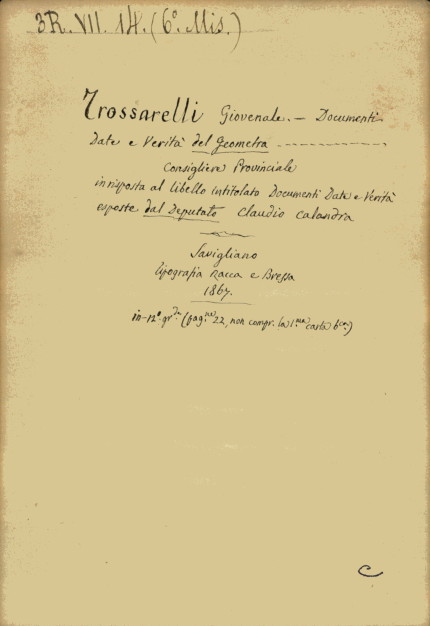 3R. VII. 14. (6º. Mis.)
Trossarelli Giovenale. — Documenti
Date e Verità del Geometra - - - - - - - - - - - -
Consigliere Provinciale
in risposta al libello intitolato Documenti Date e Verità
esposte dal Deputato Claudio Calandra
Savigliano
Tipografia Racca e Bressa
1867.
in-12º. grde. (pag.ne 22, non compr. la 1.ma carta bca.)
C